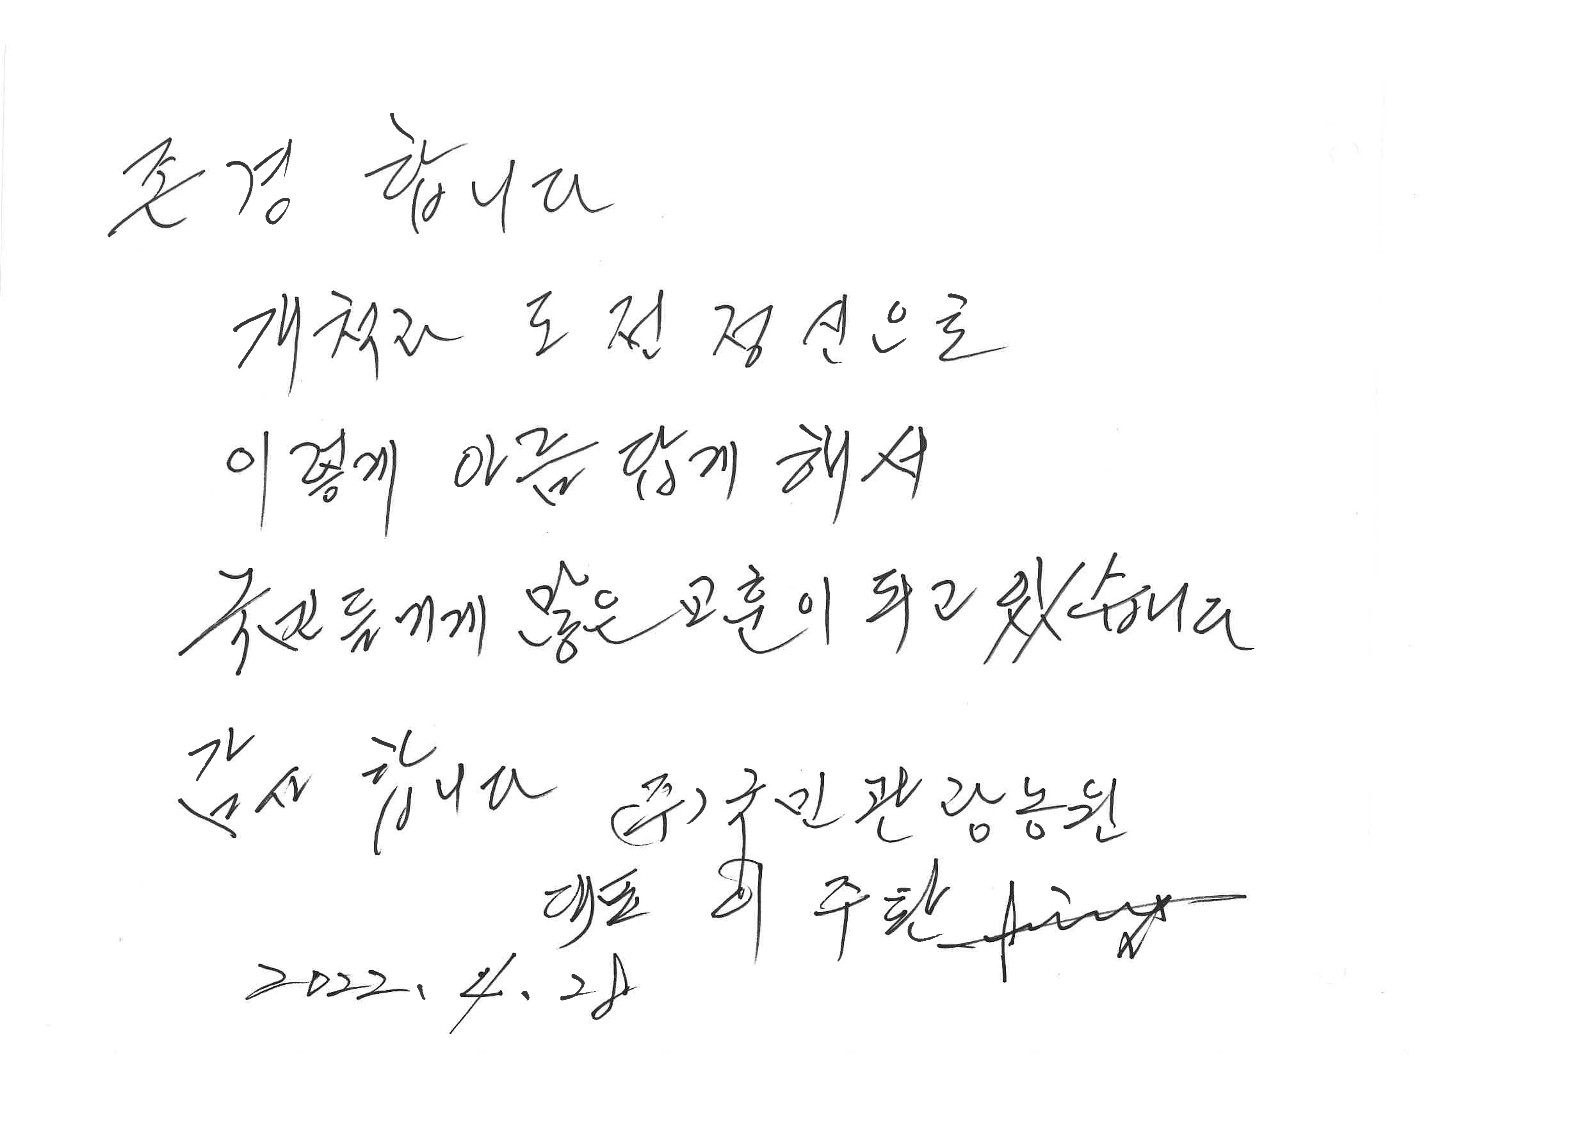 존경 합니다
개척과 도전 정신으로
이렇게 아름답게 해서
국민들에게 많은 교훈이 되고 있습니다
감사 합니다
(주)국민관광농원
대표 최 주환
2022. 4. 28